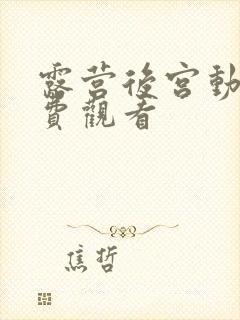 露营後宫動
費觀看
焦哲